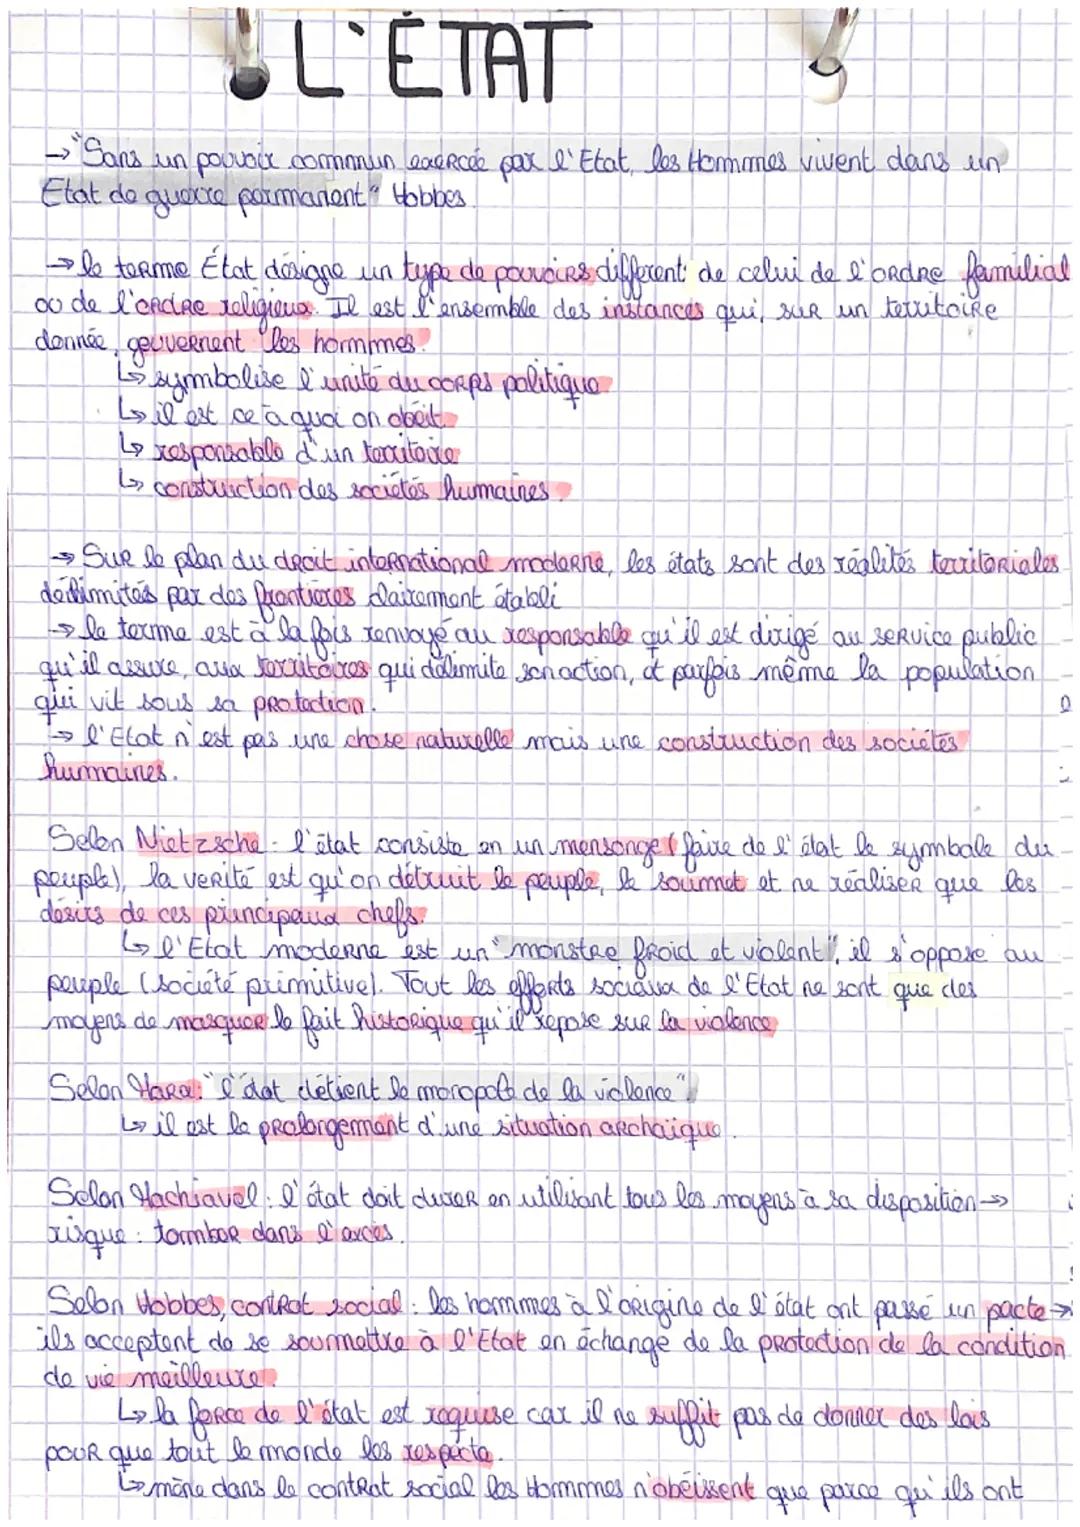 L'ÉTAT
→ "Sans un pouvoir commun exercée par l'Etat, les Hommes vivent dans un
Etat de guerre permanent" Hobbes.
→ le terme État désigne un type de pouvoirs différent de celui de l'ordre familial
ou de l'ordre religieux. Il est l'ensemble des instances qui, sur un territoire
donnée, gouvernent les hommes.
↳ symbolise l'unité du corps politique.
↳ il est ce à quoi on obéit.
↳ responsable d'un territoire
↳ construction des sociétés humaines.
→ Sur le plan du droit international moderne, les états sont des réalités territoriales
délimités par des frontières clairement établi
→ le terme est à la fois renvoyé au responsable qu'il est dirigé au service public
qu'il assure, aux territoires qui délimite son action, et parfois même la population
qui vit sous sa protection.
→ l'Etat n'est pas une chose naturelle mais une construction des sociétés
humaines.
Selon Nietzsche : l'état consiste en un mensonge (faire de l'état le symbole du
peuple), la verité est qu'on détruit le peuple, le soumet et ne réaliser que les
désirs de ces principaux chefs.
↳ l'Etat moderne est un "monstre froid et violent", il s'oppose au
peuple (société primitive). Tout les efforts sociaux de l'Etat ne sont que des
moyens de masquer le fait historique qu'il repose sur la violence
Selon Marx : "l'état détient le monopole de la violence".
↳ il est le prolongement d'une situation archaïque.
Selon Machiavel : l'état doit durer en utilisant tous les moyens à sa disposition →
risque : tomber dans l'excès.
Selon Hobbes, contrat social : les hommes à l'origine de l'état ont passé un pacte →
ils acceptent de se soumettre à l'Etat en échange de la protection de la condition
de vie meilleure.
↳ la force de l'état est requise car il ne suffit pas de donner des lois
pour que tout le monde les respecte.
↳ même dans le contrat social les Hommes n'obéissent que parce qu'ils ont